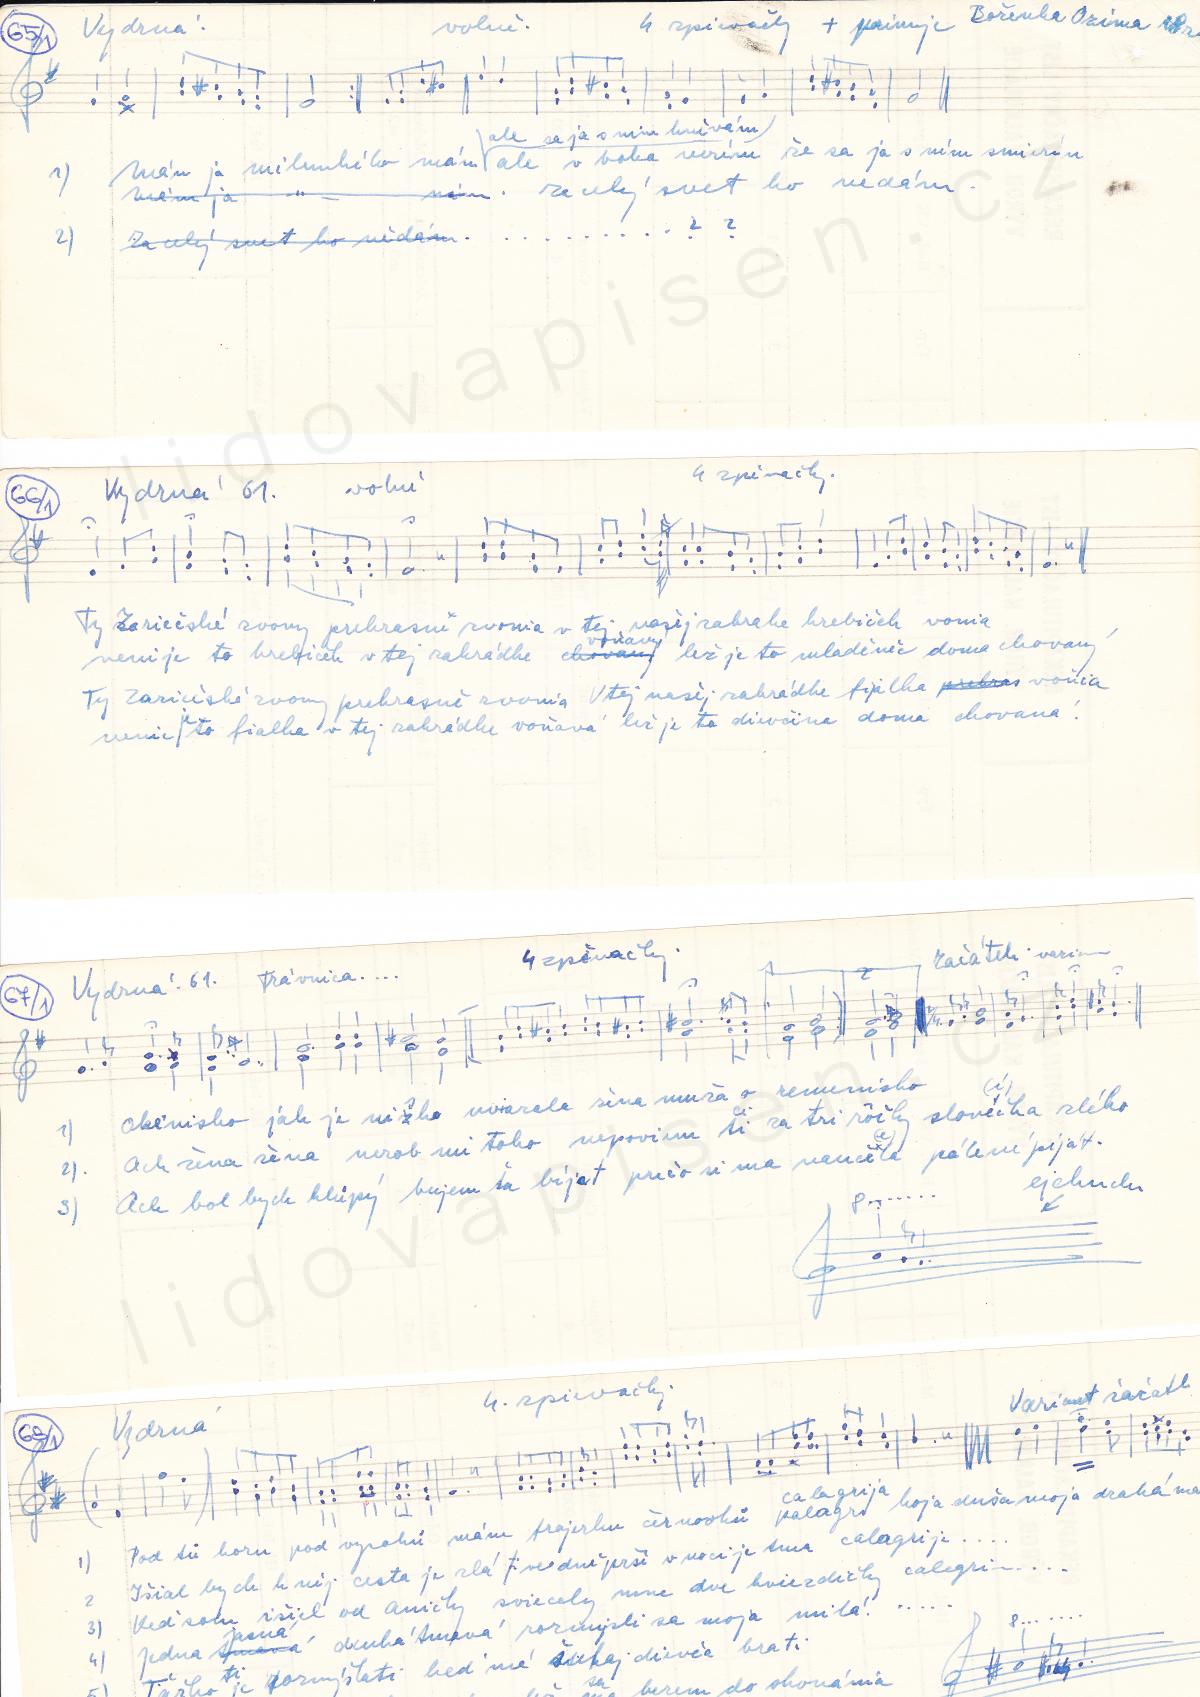 65/1 Vydrná! volně. 4 zpievačky + primuje Boženka Ozima
ale sa ja s nim hněvám
1) Mám ja milunkého mám ale v boha verím že sa ja s ním smierim
mám ja " za celý svet ho nedám.
2) Za celý svet ho nědám. . . . . . . . . . . . ? ?
66/1 Vydrná 61. volně 4 zpěvačky.
Ty Zariečské zvony prekrasně zvonia v tej našej zahrake hrebíček vonia
voňavý
neni je to hrebíček v tej zahrádke chovaný lež je to mláděněc doma chovaný
Ty Zariečské zvony prekrasně zvonia V tej našej zahrádke fijalka prekras voňia
nenie je to fialka v tej zahrádke voňavá lež je to dievčina doma chovaná!
67/1 Vydrná 61. Trávnica.... 4 zpěvačky. začátek
1) Okénisko jak je nizko uviazala žena muža o remenisko
2). Ach žena žena nerob mi toho nepoviem ti za tri rôčky slovéčka zlého
3) Ach bol bych hlúpý bujem ťa bíjat prečo si ma naučila pálené píjat.
8....... ejchuchu
68/1 Vydrná 4. zpievačky. Variant začátk
calagrija
1) Pod tú horu pod vysokú mám frajerku černookú palagri hoja duša moja drahá ma
2 Išial bych k nij cesta je zlá ve dně prší v noci je tma calagrije....
3) Keď som išijel od Aničky sviecely mne dve hviezdičky calegri.....
jasná
4) Jedna tmavá druhá tmavá rozmysli sa moja milá! .....
ti
5) Ťažko je rozmýšlati keď mé šuhaj dievča brati
8.......
sa
berem do skonánia
lidovapisen.cz
lidovapisen.cz